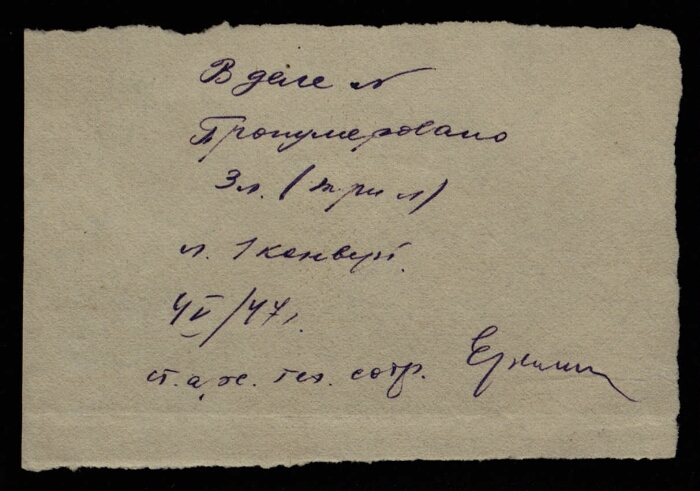 В деле №
Пронумеровано
3 л. (три л)
л. 1 конверт.
4/V/47 г.
ст. тех. сотр.